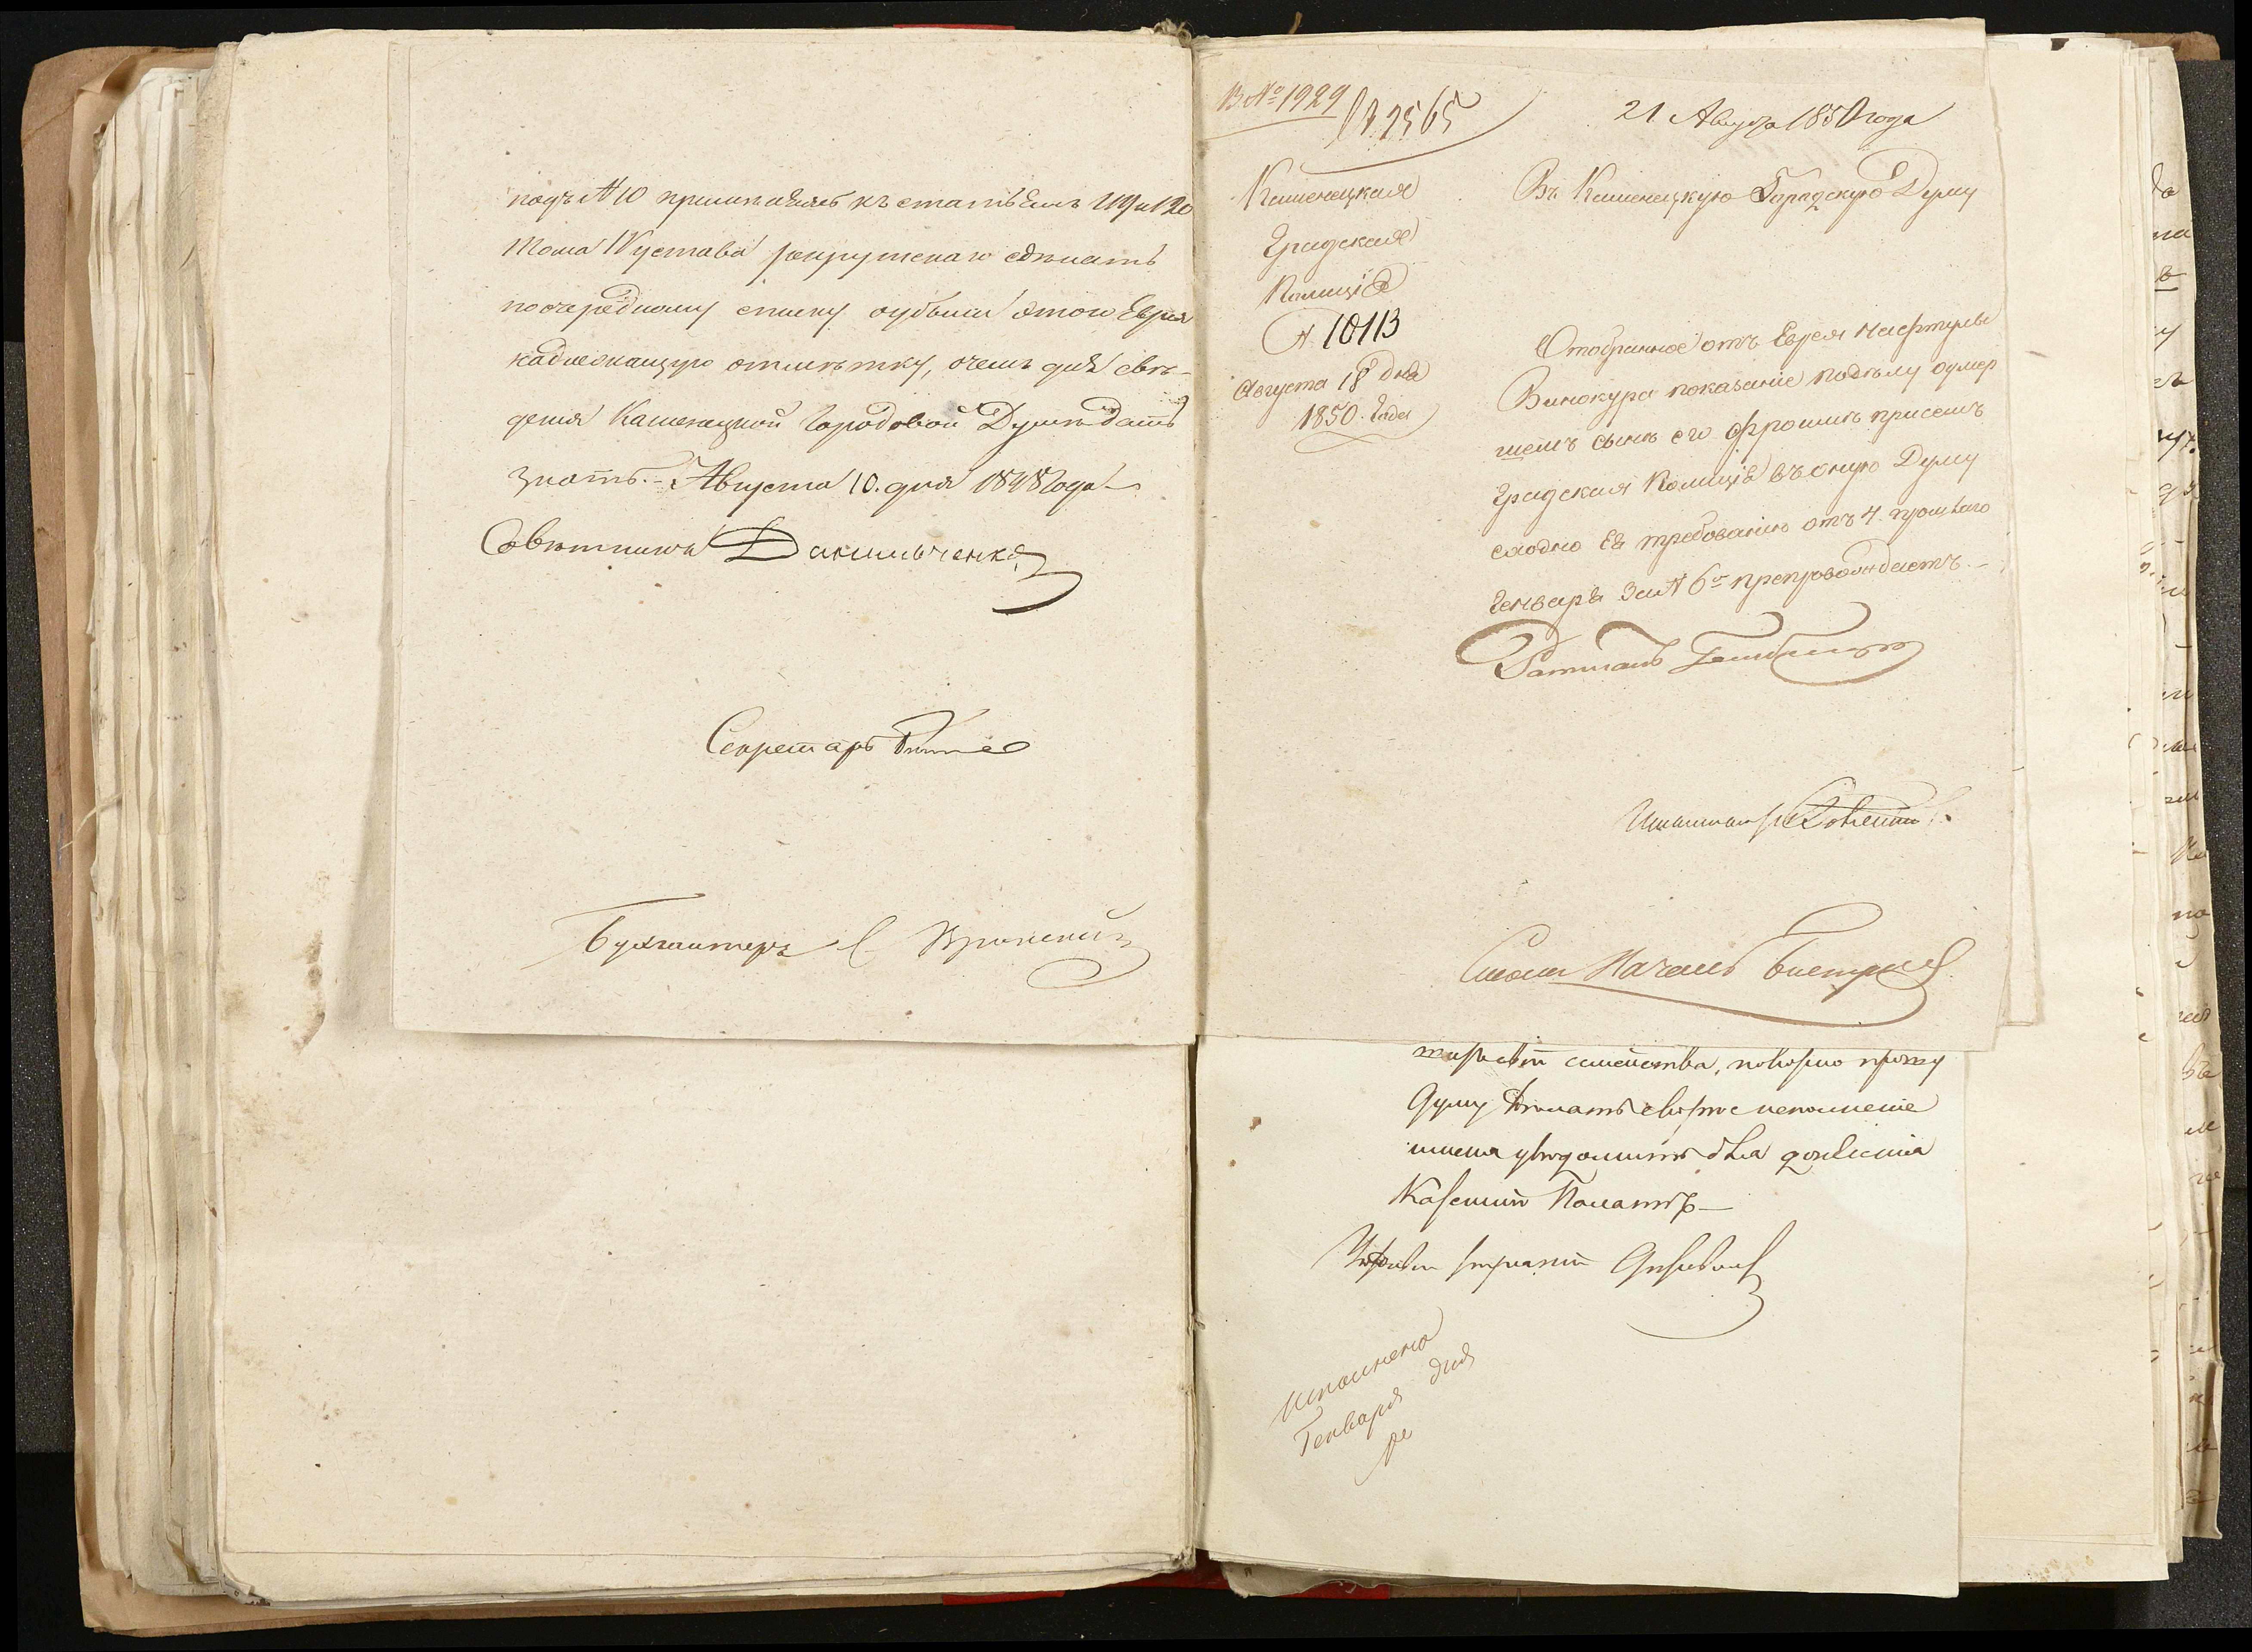 подъ № 10 примѣчаніяхъ къ статьямъ 119 и 120
тома IV устава рекрутскаго сдѣлать
по очередному списку о убыли этого Еврея
надлежащую отмѣтку, о чемъ для свѣ-
денія Каменецкой Городовой Думѣ дать
знать. - Августа 10. дня 1848 года
Совѣтникъ Данильченко
Секретарь
Бухгалтеръ
В № 1929
№ 2565
21 Августа 1850 года
Каменецкая
Градская
Полиція
№ 10113
Августа 18 дня
1850. Года
Въ Каменецкую Городскую Думу
Отобранное отъ Еврея Нафтулы
Винокура показаніе подѣлу о умер
шемъ сынѣ его Фроимѣ при семъ
Градская Полиція въ оную Думу
сходно Ея требованію отъ 4. прошлаго
Генваря За № 6 м препровождаетъ. -
Ратманъ
Столо Началь
семейства, покорно прошу
Думу сдѣлать скорое исполненіе
и меня увѣдомить для донесенія
Казенной Палатѣ -
исполнено
Генваря дня